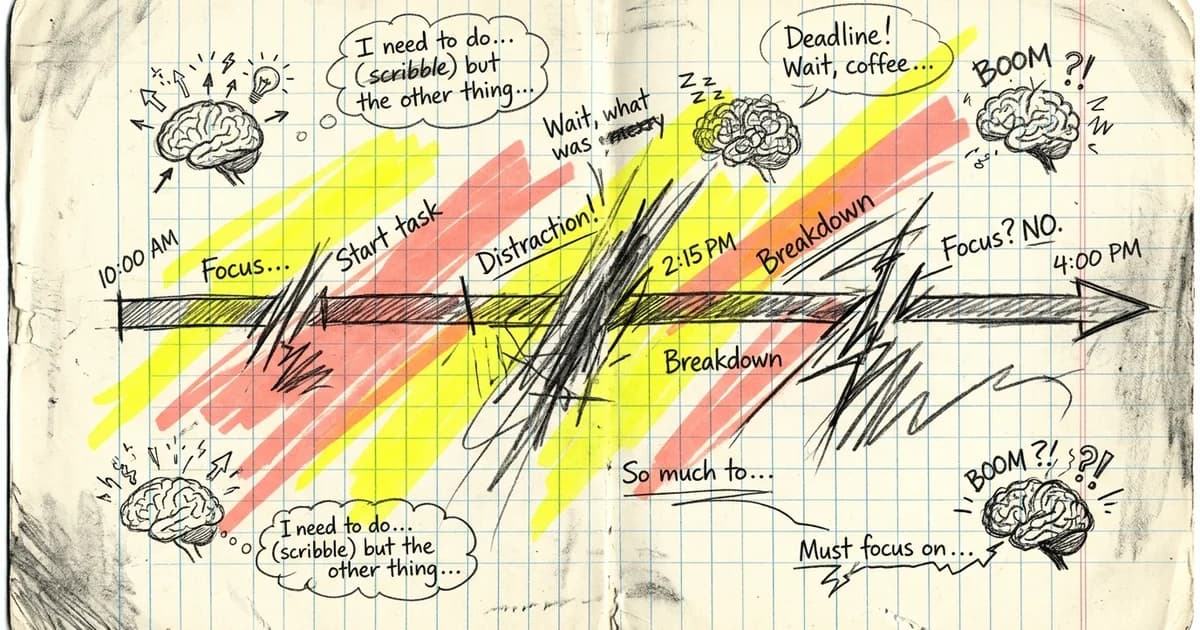 I need to do...
(scribble) but
the other thing...
Deadline!
Wait, coffee...
BOOM ?!
Zz
zz
Wait, what
was
10:00 AM
Focus...
Start task
Distraction!!
2:15 PM
Breakdown
Focus? NO.
4:00 PM
Breakdown
So much to...
BOOM?! ?!
I need to do...
(scribble) but the
other thing...
Must focus on...